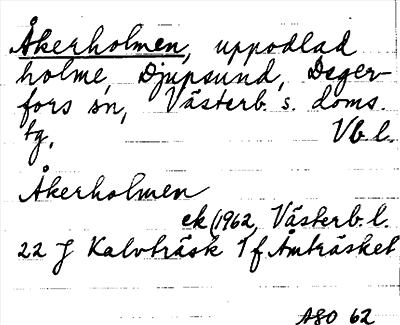 Åkerholmen, uppodlad
holme, Djupsund, Deger-
fors sn, Västerb. s. doms.
tg, Vb.l.
Åkerholmen
ek (1962, Västerb. l.
22 J Kalvträsk 1 f Åmträsket
ASO 62